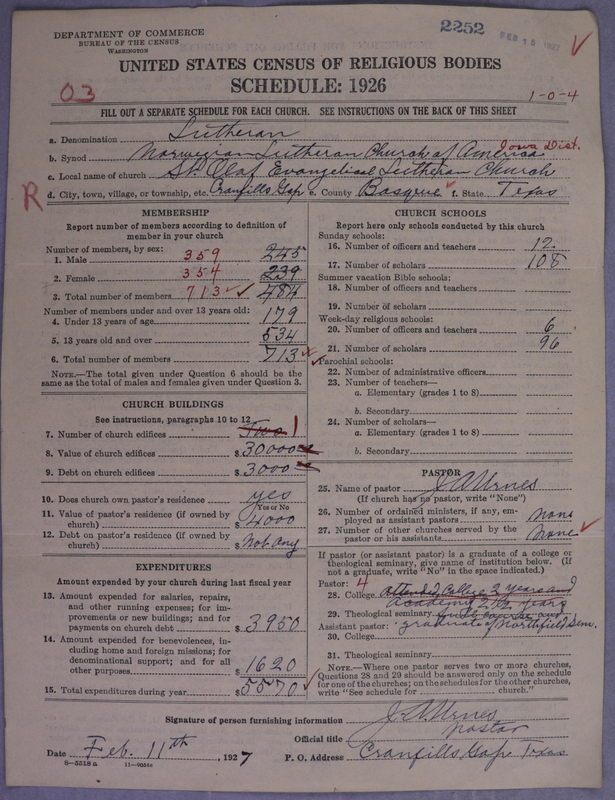 DEPARTMENT OF COMMERCE
BUREAU OF THE CENSUS
WASHINGTON
2252
FEB 15 1927
UNITED STATES CENSUS OF RELIGIOUS BODIES
SCHEDULE: 1926
03
1-0-4
FILL OUT A SEPARATE SCHEDULE FOR EACH CHURCH. SEE INSTRUCTIONS ON THE BACK OF THIS SHEET
a. Denomination Lutheran
b. Synod Norwegian Lutheran Church of America Iowa Dist.
c. Local name of church St. Olaf Evangelical Lutheran Church
R
d. City, town, village, or township, etc. Cranfills Gap e. County Bosque f. State Texas
MEMBERSHIP
Report number of members according to definition of member in your church
Number of members, by sex:
1. Male 359 245
2. Female 354 239
3. Total number of members 713 484
Number of members under and over 13 years old:
4. Under 13 years of age 179
5. 13 years old and over 534
6. Total number of members 713
NOTE.—The total given under Question 6 should be the same as the total of males and females given under Question 3.
CHURCH BUILDINGS
See instructions, paragraphs 10 to 12
7. Number of church edifices Two 1
8. Value of church edifices $30000
9. Debt on church edifices $3000
10. Does church own pastor's residence yes
Yes or No
11. Value of pastor's residence (if owned by church) $4000
12. Debt on pastor's residence (if owned by church) $Not any
EXPENDITURES
Amount expended by your church during last fiscal year
13. Amount expended for salaries, repairs, and other running expenses; for improvements or new buildings; and for payments on church debt $3950
14. Amount expended for benevolences, including home and foreign missions; for denominational support; and for all other purposes $1620
15. Total expenditures during year $5570
CHURCH SCHOOLS
Report here only schools conducted by this church
Sunday schools:
16. Number of officers and teachers 12
17. Number of scholars 108
Summer vacation Bible schools:
18. Number of officers and teachers
19. Number of scholars
Week-day religious schools:
20. Number of officers and teachers 6
21. Number of scholars 96
Parochial schools:
22. Number of administrative officers
23. Number of teachers—
a. Elementary (grades 1 to 8)
b. Secondary
24. Number of scholars—
a. Elementary (grades 1 to 8)
b. Secondary
PASTOR
25. Name of pastor J. A. Urnes
(If church has no pastor, write "None")
26. Number of ordained ministers, if any, employed as assistant pastors none
27. Number of other churches served by the pastor or his assistants None
If pastor (or assistant pastor) is a graduate of a college or theological seminary, give name of institution below. (If not a graduate, write "No" in the space indicated.)
Pastor: 4
28. College attended College 2 years and
Academy 2½ years
29. Theological seminary
Assistant pastor: graduate of Northfield Sem.
30. College
31. Theological seminary
NOTE.—Where one pastor serves two or more churches, Questions 28 and 29 should be answered only on the schedule for one of the churches; on the schedules for the other churches, write "See schedule for church."
Signature of person furnishing information J. A. Urnes
Official title pastor
Date Feb. 11th, 1927 P. O. Address Cranfills Gap Texas